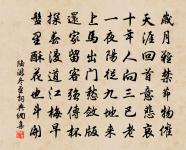 歲月難禁節物催
天涯回首意悲哀
十年人向三巴老
一夜陽從九地來
上馬出門愁斂版
還家留客強傳杯
探春漫道江梅早
盤里酥花也斗開
陸游冬至詞典網集